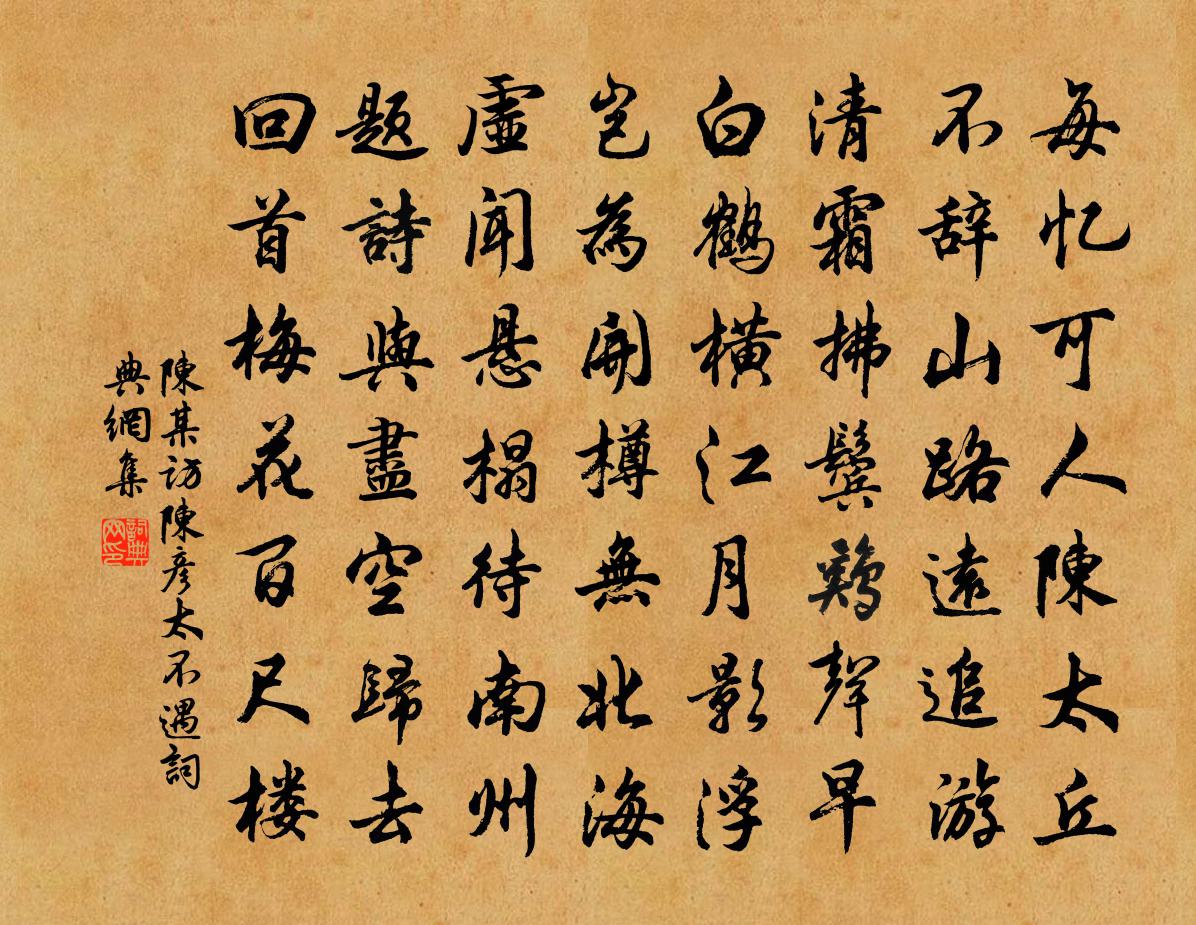 每忆可人陳太丘
不辞山路遠追游
清霜拂鬓鷄聲早
白鶴橫江月影浮
岂為開樽無北海
虛闻悬榻待南州
題詩與盡空歸去
回首梅花百尺楼
陳某访陳彦太不遇詞
典網集
詞典
网印